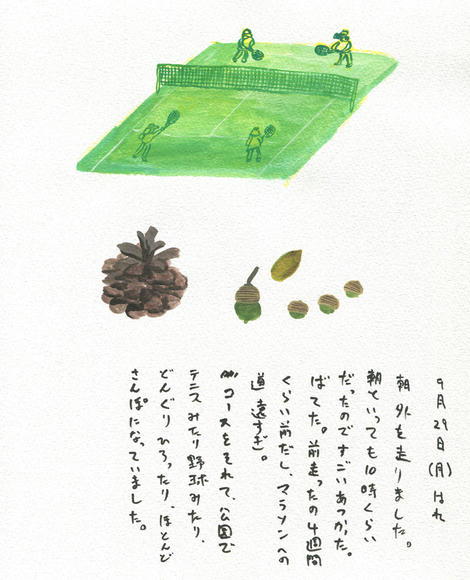 9月29日(月)はれ
朝 外を走りました。
朝といっても10時くらい
だったのですごいあつかった。
ばてた。前走ったの4週間
くらい前だし、マラソンへの
道 遠すぎ。
コースをそれて、公園で
テニスみたり野球みたり、
どんぐりひろったり、ほとんど
さんぽになっていました。